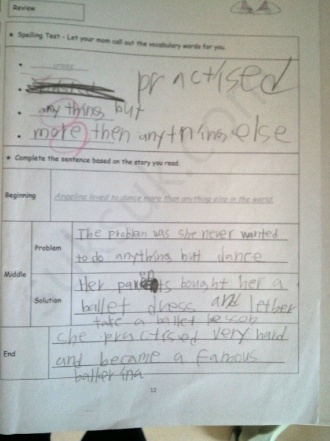 Review
★ Spelling Test - Let your mom call out the vocabulary words for you.
practised
anything but
more then anything else
★ Complete the sentence based on the story you read.
Beginning
Angelina loved to dance more than anything else in the world.
Middle
Problem
The problem was she never wanted
to do anything but dance
Solution
Her parents bought her a
ballet dress and let her
take a ballet lesson
End
She practised very hard
and became a famous
ballerina
12